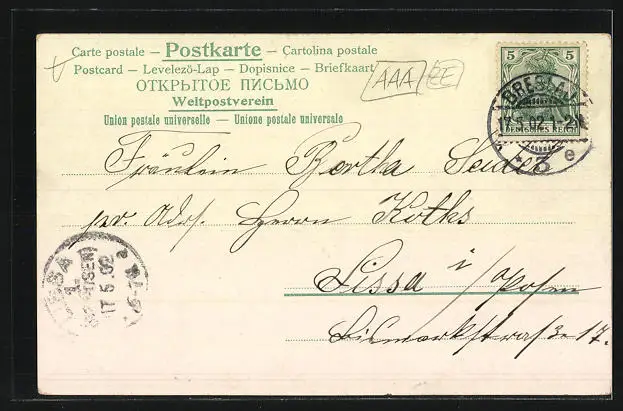 Carte postale – Postkarte – Cartolina postale
Postcard – Levelező-Lap – Dopisnice – Briefkaart
ОТКРЫТОЕ ПИСЬМО
Weltpostverein
Union postale universelle – Unione postale universale
AAA
EE
5 5
DEUTSCHES REICH
BRESLAU
17.5.02.1-2
* 3 e
Fräulein Bertha Seidel
pr. Adr. Herrn Koths
Lissa i/Posen
Bismarkstraße 17.
LISSA
(BZ. POSEN)
17 5 02